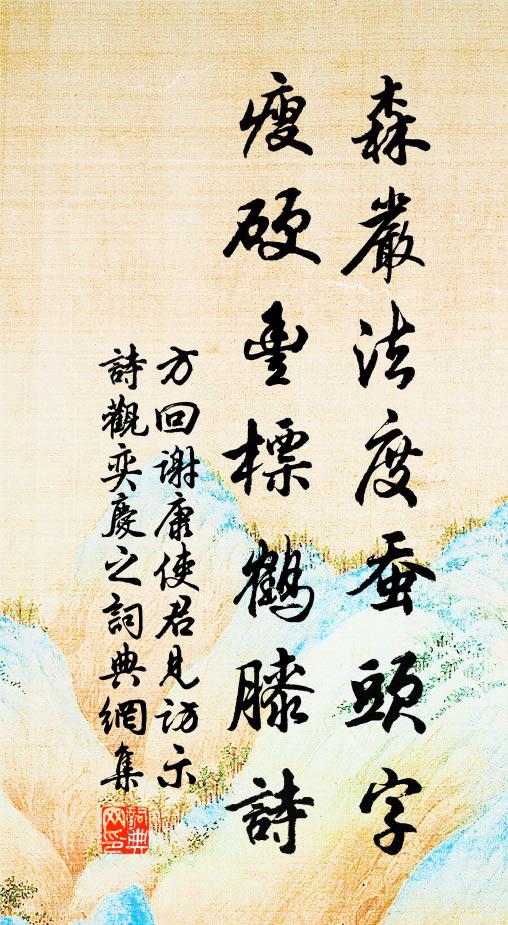 森嚴法度蚕頭字
瘦硬豊標鶴膝詩
方回謝康使君見訪示
詩觀奕慶之詞典網集
詞典
网印